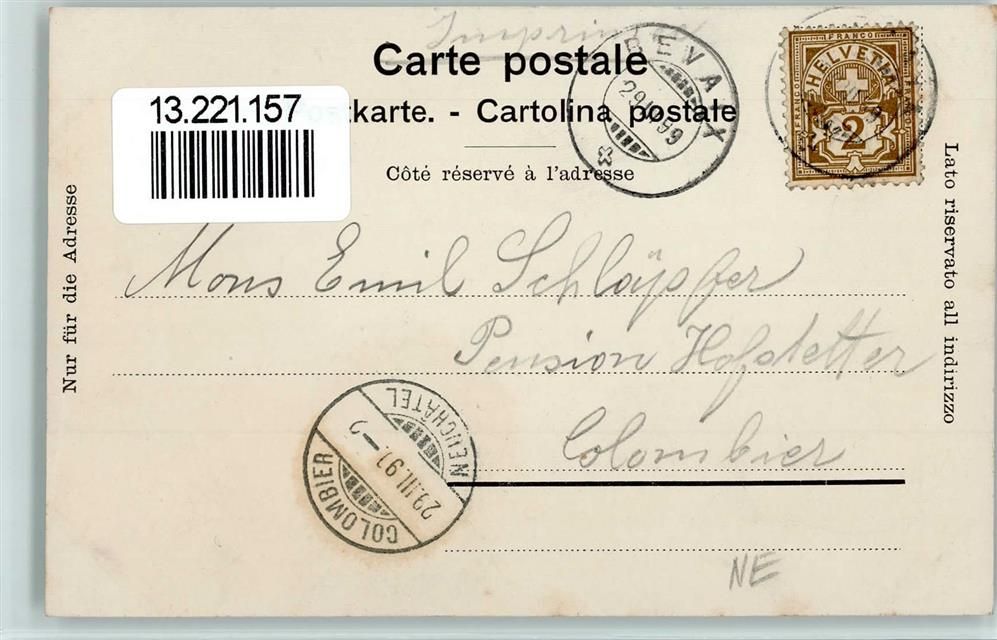 Imprimé
Carte postale
13.221.157
tkarte. - Cartolina postale
Côté réservé à l'adresse
BEVAIX
29.III.99
FRANCO
HELVETIA
FRANCO
2
Nur für die Adresse
Lato riservato all indirizzo
Mons Emil Schläpfer
Pension Hofstetter
Colombier
NEUCHÂTEL
29.III.99.-2
COLOMBIER
NE